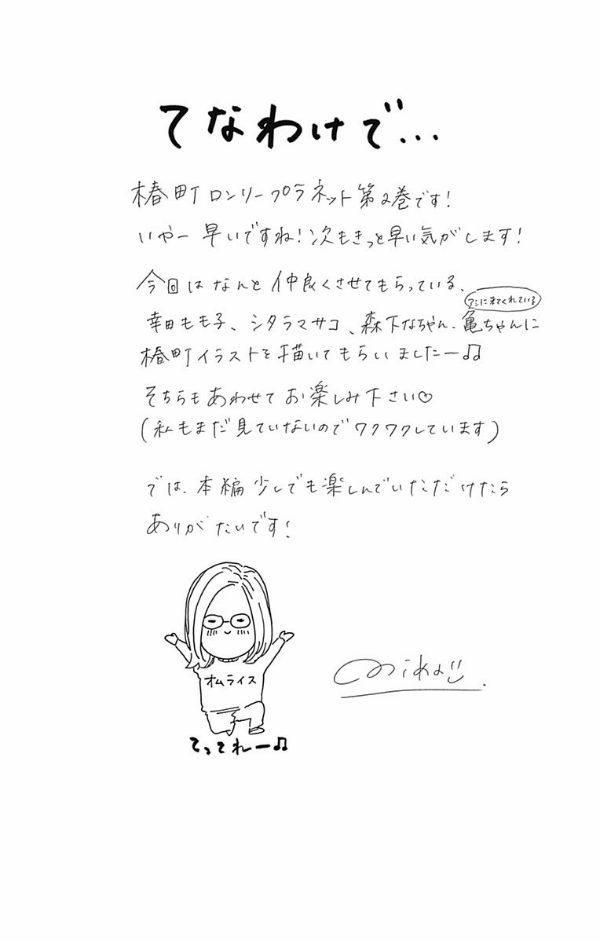 てなわけで…
椿町ロンリープラネット第2巻です!
いやー早いですね!次もきっと早い気がします!
今回はなんと仲良くさせてもらっている、
アシに来てくれている
幸田もも子、シタラマサコ、森下なちゃん、亀ちゃんに
椿町イラストを描いてもらいましたー♫
そちらもあわせてお楽しみ下さい♡
(私もまだ見ていないのでワクワクしています)
では、本編少しでも楽しんでいただけたら
ありがたいです!
オムライス
てってれー♫